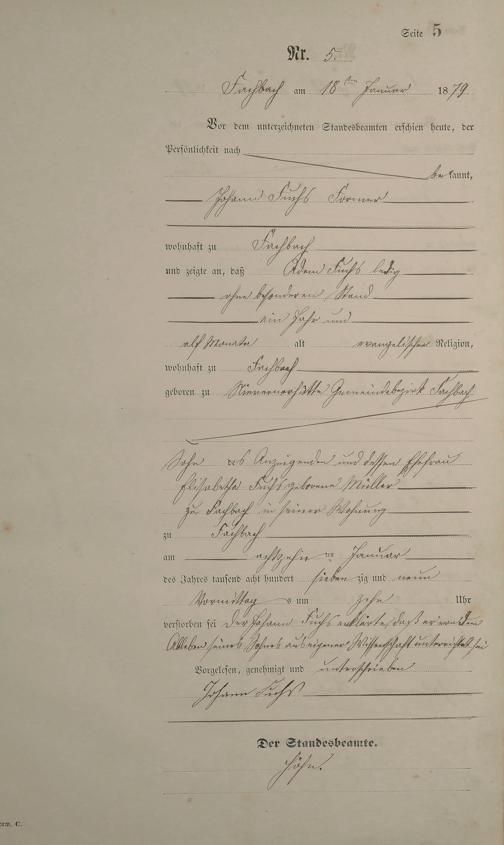 Seite 5
Nr. 5.
Fachbach am 18ten Januar 1879
Vor dem unterzeichneten Standesbeamten erschien heute, der
Persönlichkeit nach
bekannt,
Johann Fuchs Former
wohnhaft zu Fachbach
und zeigte an, daß Adam Fuchs ledig
ohne besonderen Stand
ein Jahr und
elf Monate alt evangelischer Religion,
wohnhaft zu Fachbach
geboren zu Nievernerhütte Gemeindebezirk Fachbach
Sohn des Anzeigenden und dessen Ehefrau
Elisabetha Fuchs geborene Müller
zu Fachbach in seiner Wohnung
zu Fachbach
am achtzehn ten Januar
des Jahres tausend acht hundert siebenzig und neun
Vormittags um zehn Uhr
verstorben sei Der Johann Fuchs erklärte, daß er von dem
Ableben seines Sohnes aus eigener Wissenschaft unterrichtet sei
Vorgelesen, genehmigt und unterschrieben
Johann Fuchs
Der Standesbeamte.
Höhn.
rm. C.